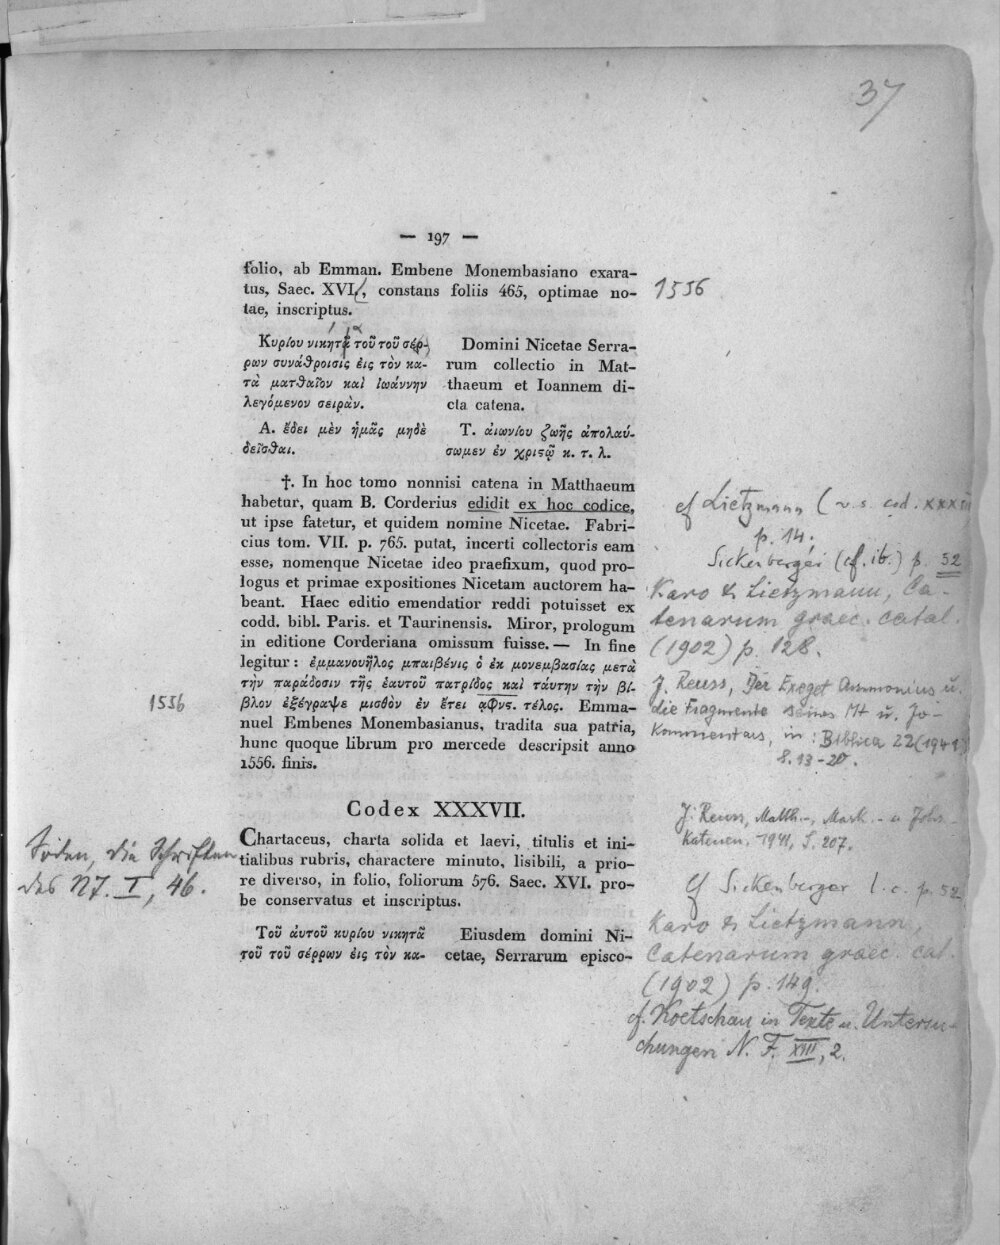 37
— 197 —
folio, ab Emman. Embene Monembasiano exara-
tus, Saec. XVI., constans foliis 465, optimae no-
tae, inscriptus.
1556
Κυρίου νικητᾶ τοῦ τοῦ σέῤ-
ρων συνάθροισις ἐις τὸν κα-
τὰ ματθαῖον καὶ ἰωάννην
λεγόμενον σειράν.
Α. ἔδει μὲν ἡμᾶς μηδὲ
δεῖσθαι.
Domini Nicetae Serra-
rum collectio in Mat-
thaeum et Ioannem di-
cta catena.
Τ. ἀιωνίου ζωῆς ἀπολαύ-
σωμεν ἐν χριστῷ κ. τ. λ.
†. In hoc tomo nonnisi catena in Matthaeum
habetur, quam B. Corderius edidit ex hoc codice,
ut ipse fatetur, et quidem nomine Nicetae. Fabri-
cius tom. VII. p. 765. putat, incerti collectoris eam
esse, nomenque Nicetae ideo praefixum, quod pro-
logus et primae expositiones Nicetam auctorem ha-
beant. Haec editio emendatior reddi potuisset ex
codd. bibl. Paris. et Taurinensis. Miror, prologum
in editione Corderiana omissum fuisse. — In fine
legitur: ἐμμανουῆλος μπαιβένις ὁ ἐκ μονεμβασίας μετὰ
τὴν παράδοσιν τῆς ἑαυτοῦ πατρίδος καὶ τάυτην τὴν βί-
βλον ἐξέγραψε μισθὸν ἐν ἔτει αφνς. τέλος. Emma-
nuel Embenes Monembasianus, tradita sua patria,
hunc quoque librum pro mercede descripsit anno
1556. finis.
1556
cf Lietzmann (v. s. cod. XXXIII
p. 14.
Sickenberger (cf. ib.) p. 52
Karo & Lietzmann, Ca-
tenarum graec. catal.
(1902) p. 128.
J. Reuss, Der Exeget Ammonius u.
die Fragmente seines Mt u. Jo-
Kommentars, in: Biblica 22 (1941)
S. 13-20.
Codex XXXVII.
Chartaceus, charta solida et laevi, titulis et ini-
tialibus rubris, charactere minuto, lisibili, a prio-
re diverso, in folio, foliorum 576. Saec. XVI. pro-
be conservatus et inscriptus.
Τοῦ ἀυτοῦ κυρίου νικητᾶ
τοῦ τοῦ σέρρων ἐις τὸν κα-
Eiusdem domini Ni-
cetae, Serrarum episco-
Soden, die Schriften
des NT. I, 46.
J. Reuss, Matth.-, Mark.- u Joh.-
Katenen, 1941, S. 207.
Cf Sickenberger l. c. p. 52
Karo & Lietzmann,
Catenarum graec. cat.
(1902) p. 149.
cf. Koetschau in Texte u. Untersu-
chungen N. F. XIII, 2.